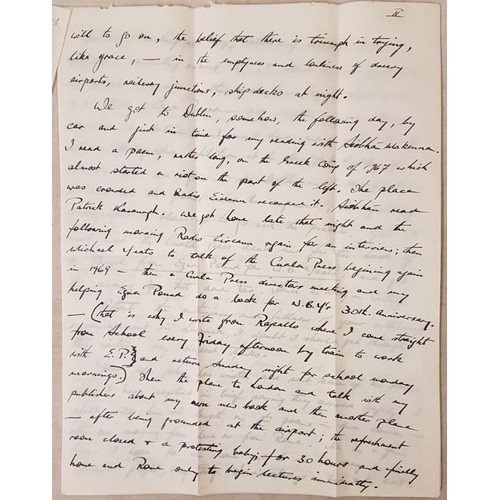 II
will to go on, the belief that there is triumph in trying,
like grace, — in the emptyness and lonliness of dreary
airports, railway junctions, ship decks at night.
We got to Dublin, somehow, the following day, by
car and just in time for my reading with Siobhán McKenna.
I read a poem, rather long, on the Greek Coup of 1967 which
almost started a riot on the part of the left. The place
was crowded and Radio Eireann recorded it. Siobhán read
Patrick Kavanagh. We got home late that night and the
following morning Radio Eireann again for an interview; then
Michael Yeats to talk of the Cuala Press beginning again
in 1969 — then a Cuala Press directors meeting and my
helping Ezra Pound do a book for W.B.Y's 30th Anniversary.
— (that is why I write from Rapallo where I come straight
from School every Friday afternoon by train to work
with E.P. and return Sunday night for school monday
mornings.) Then the plane to London and talk with my
publishers about my own new book and then another plane
— after being grounded at the airport; the refreshment
room closed & a protesting baby; for 30 hours and finally
home and Rome only to begin lectures immediately.